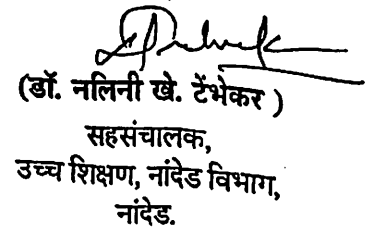 (डॉ. नलिनी खे. टेंभेकर )
सहसंचालक,
उच्च शिक्षण, नांदेड विभाग,
नांदेड.